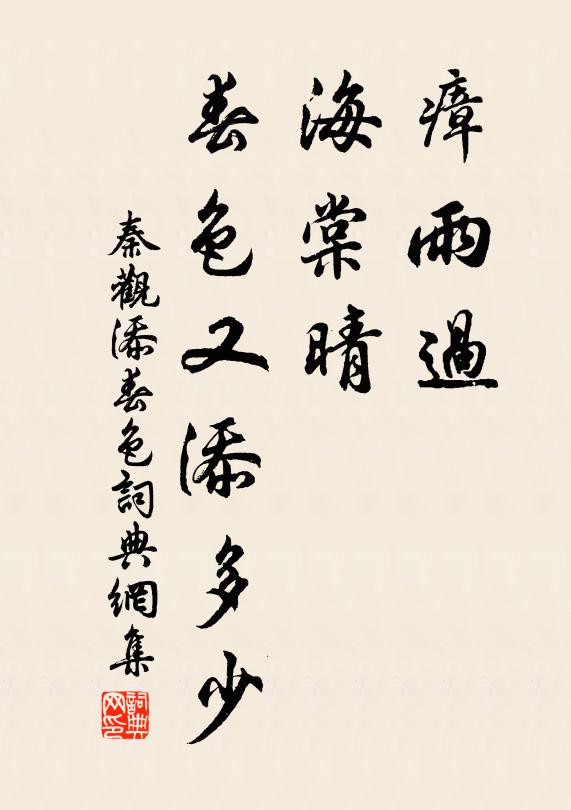 瘴雨過
海棠晴
春色又添多少
秦觀添春色詞典網集
詞典網印